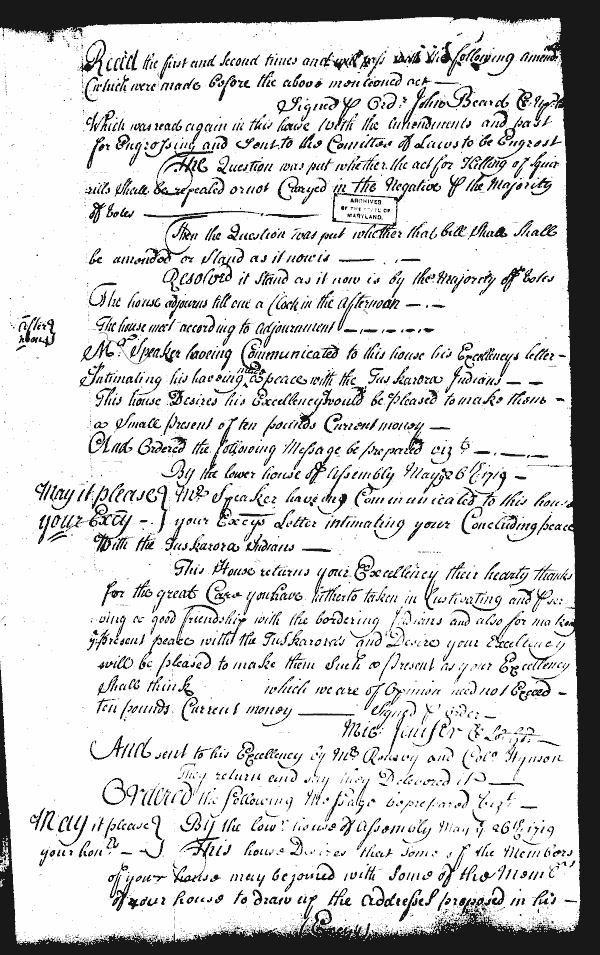 Read the first and second times and will pass with the following amendmts
(which were made before the above mentioned act —
Signed p Ordr John Beard Cl
Which was read again in this house with the amendments and past
for Engrossing and sent to the Comittee of Laws to be Engrost
The Question was put whether the act for Killing of Squir
rills shall be repealed or not Carryed in the Negative p the Majority
of Votes —
ARCHIVES
OF THE STATE OF
MARYLAND.
Then the Question was put whether that bill shall shall
be amended or stand as it now is —
Resolved it stand as it now is by the Majority of Votes
The house adjourns till one a Clock in the afternoon — . —
after
noon
The house met according to adjournment — . — . — . —
Mr Speaker haveing Communicated to this house his Excellencys letter —
Intimating his haveing made a peace with the Tuskarora Indians — —
This house Desires his Excellency would be pleased to make them —
a Small present of ten pounds Current money —
And Ordered the following Message be prepared vizt — . — . —
By the lower house of Assembly May ye 26th 1719 —
May it please
your Excy —
Mr Speaker haveing Communicated to this house
your Excys Letter intimating your Concluding peace
With the Tuskarora Indians —
This House returns your Excellency their hearty thanks
for the great Care you have hitherto taken in Custivating and Pser
ving a good friendship with the bordering Indians and also for making
ys present peace with the Tuskaroras and Desire your Excellency
will be pleased to make them Such a present as your Excellency
shall think which we are of Opinion need not Exceed —
ten pounds Current money — Signed p Order —
Mic: Jenifer Cl
And sent to his Excellency by Mr and Colo Hynson
They return and say they Delivered it —
Ordered the following Message be prepared vizt —
May it please
your honrs —
By the lowr house of Assembly May ye 26th 1719
This house Desires that some of the Members
of your house may be joined with some of the Membrs
of our house to draw up the addresses proposed in his —
Excys